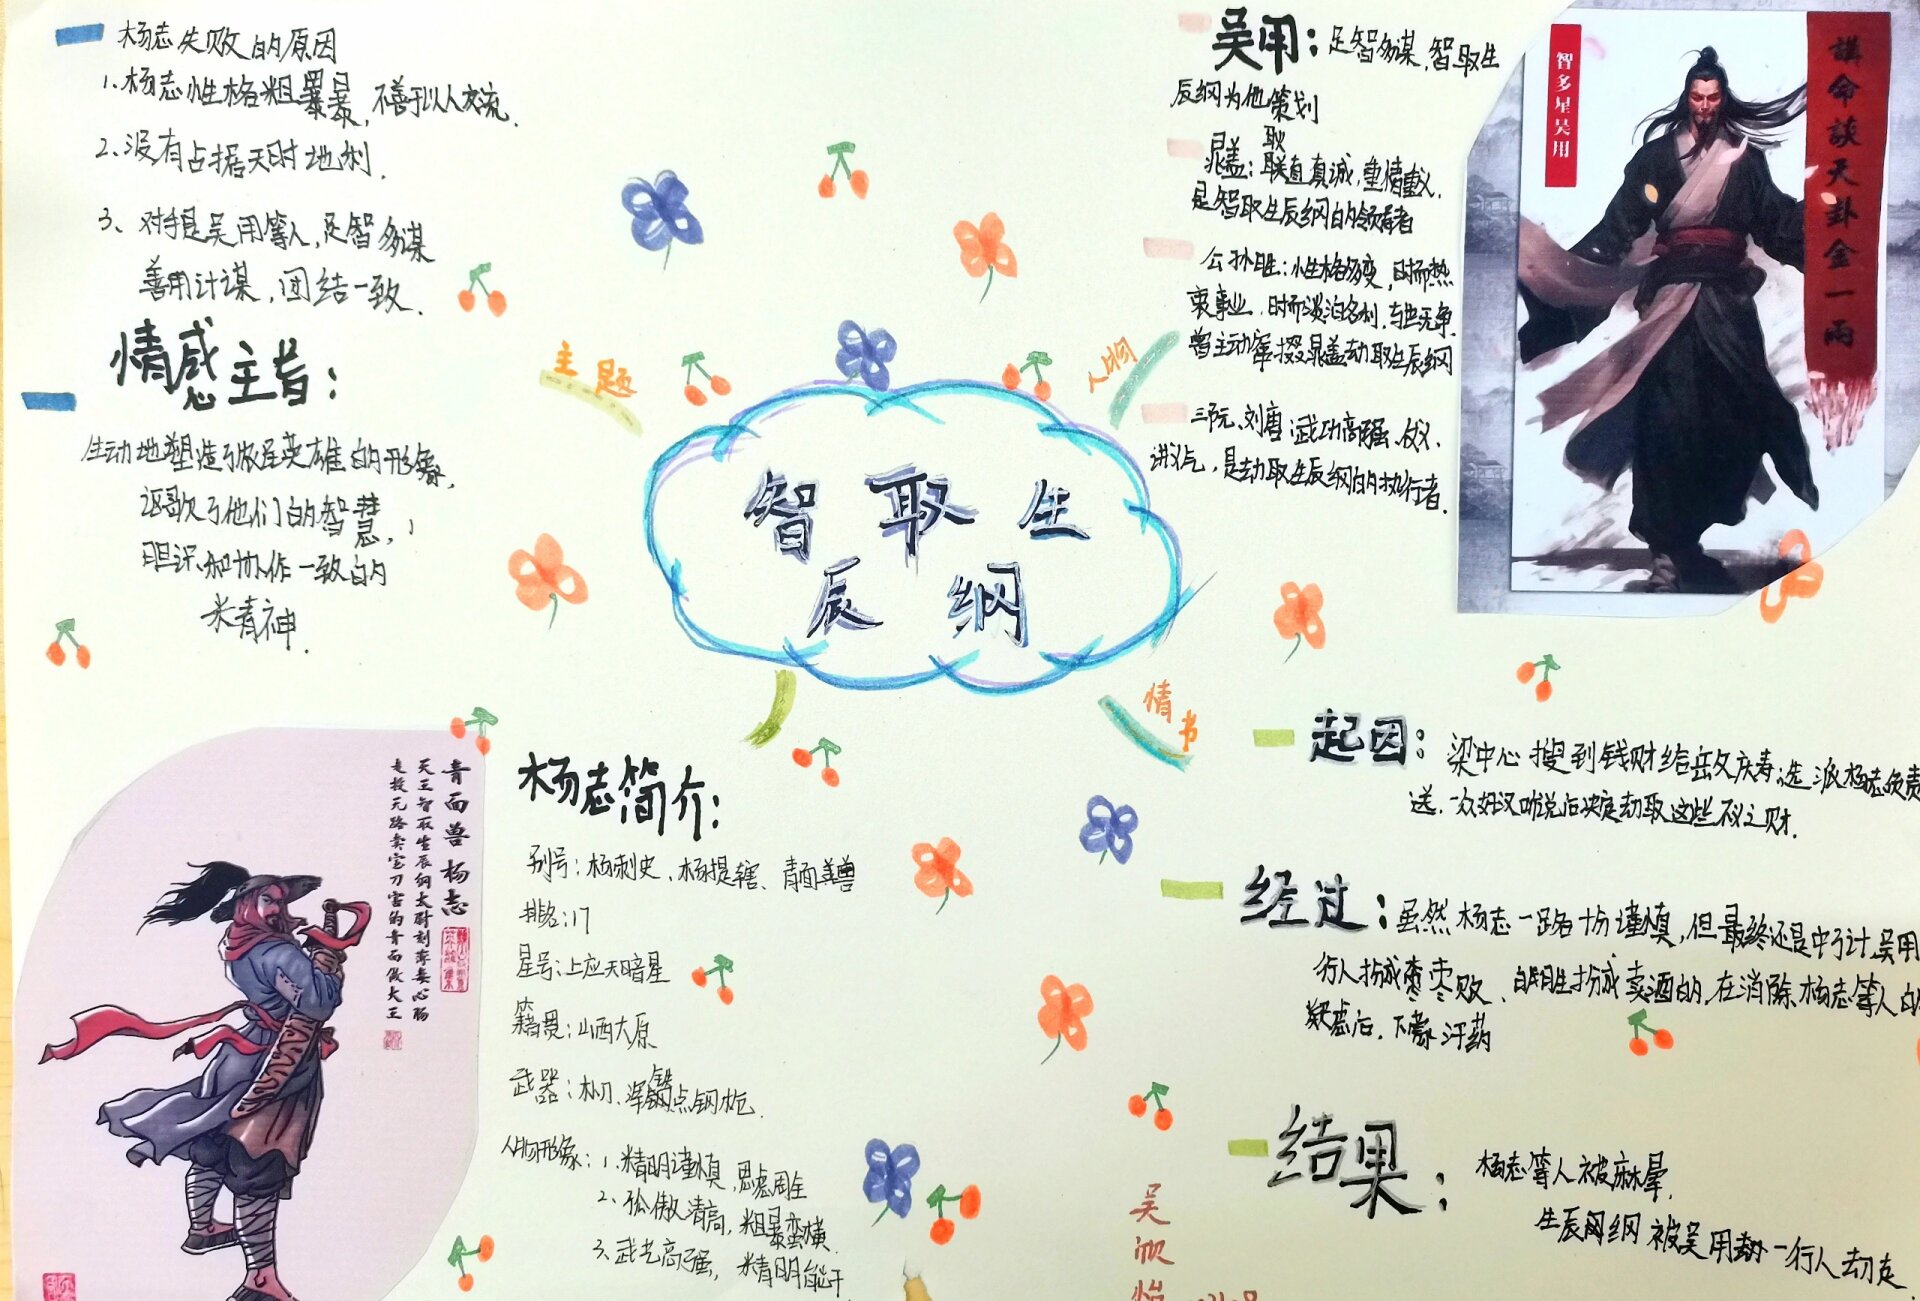 杨志失败的原因
1.杨志性格粗暴,不善于以人交流.
2.没有占据天时地利.
3、对手是吴用等人,足智多谋
善用计谋,团结一致.
情感主旨:
生动地塑造了众英雄的形象,
讴歌了他们的智慧,
胆识和协作一致的
精神.
主题
人物
情书
智取生
辰纲
吴用:足智多谋,智取生
辰纲为他策划
晁盖:耿直真诚,重情重义.
是智取生辰纲的领导者
公孙胜:性格多变,时而热
衷事业.时而淡泊名利.与世无争.
曾主动撺掇晁盖劫取生辰纲
三阮、刘唐:武功高强、仗义.
讲义气,是劫取生辰纲的执行者.
智多星吴用
谋命谈天卦金一两
青面兽杨志
天王智取生辰纲太尉刻薄毒心肠
走投无路卖宝刀害的青面做大王
杨志简介:
别号:杨制史、杨提辖、青面兽
排名:17
星号:上应天暗星
籍贯:山西太原
武器:朴刀、浑铁点钢枪.
人物形象:1.精明谨慎,思虑周全
2、孤傲清高,粗暴蛮横.
3、武艺高强,精明能干
起因:梁中心搜到钱财给岳父庆寿;选派杨志负责
送.一众好汉听说后决定劫取这些不义之财.
经过:虽然杨志一路十分谨慎,但最终还是中了计.吴用
行人扮成枣枣贩、白胜扮成卖酒的.在消除杨志等人的
疑虑后.下蒙汗药
结果:杨志等人被麻晕.
生辰纲被吴用一行人劫走.
吴
怡